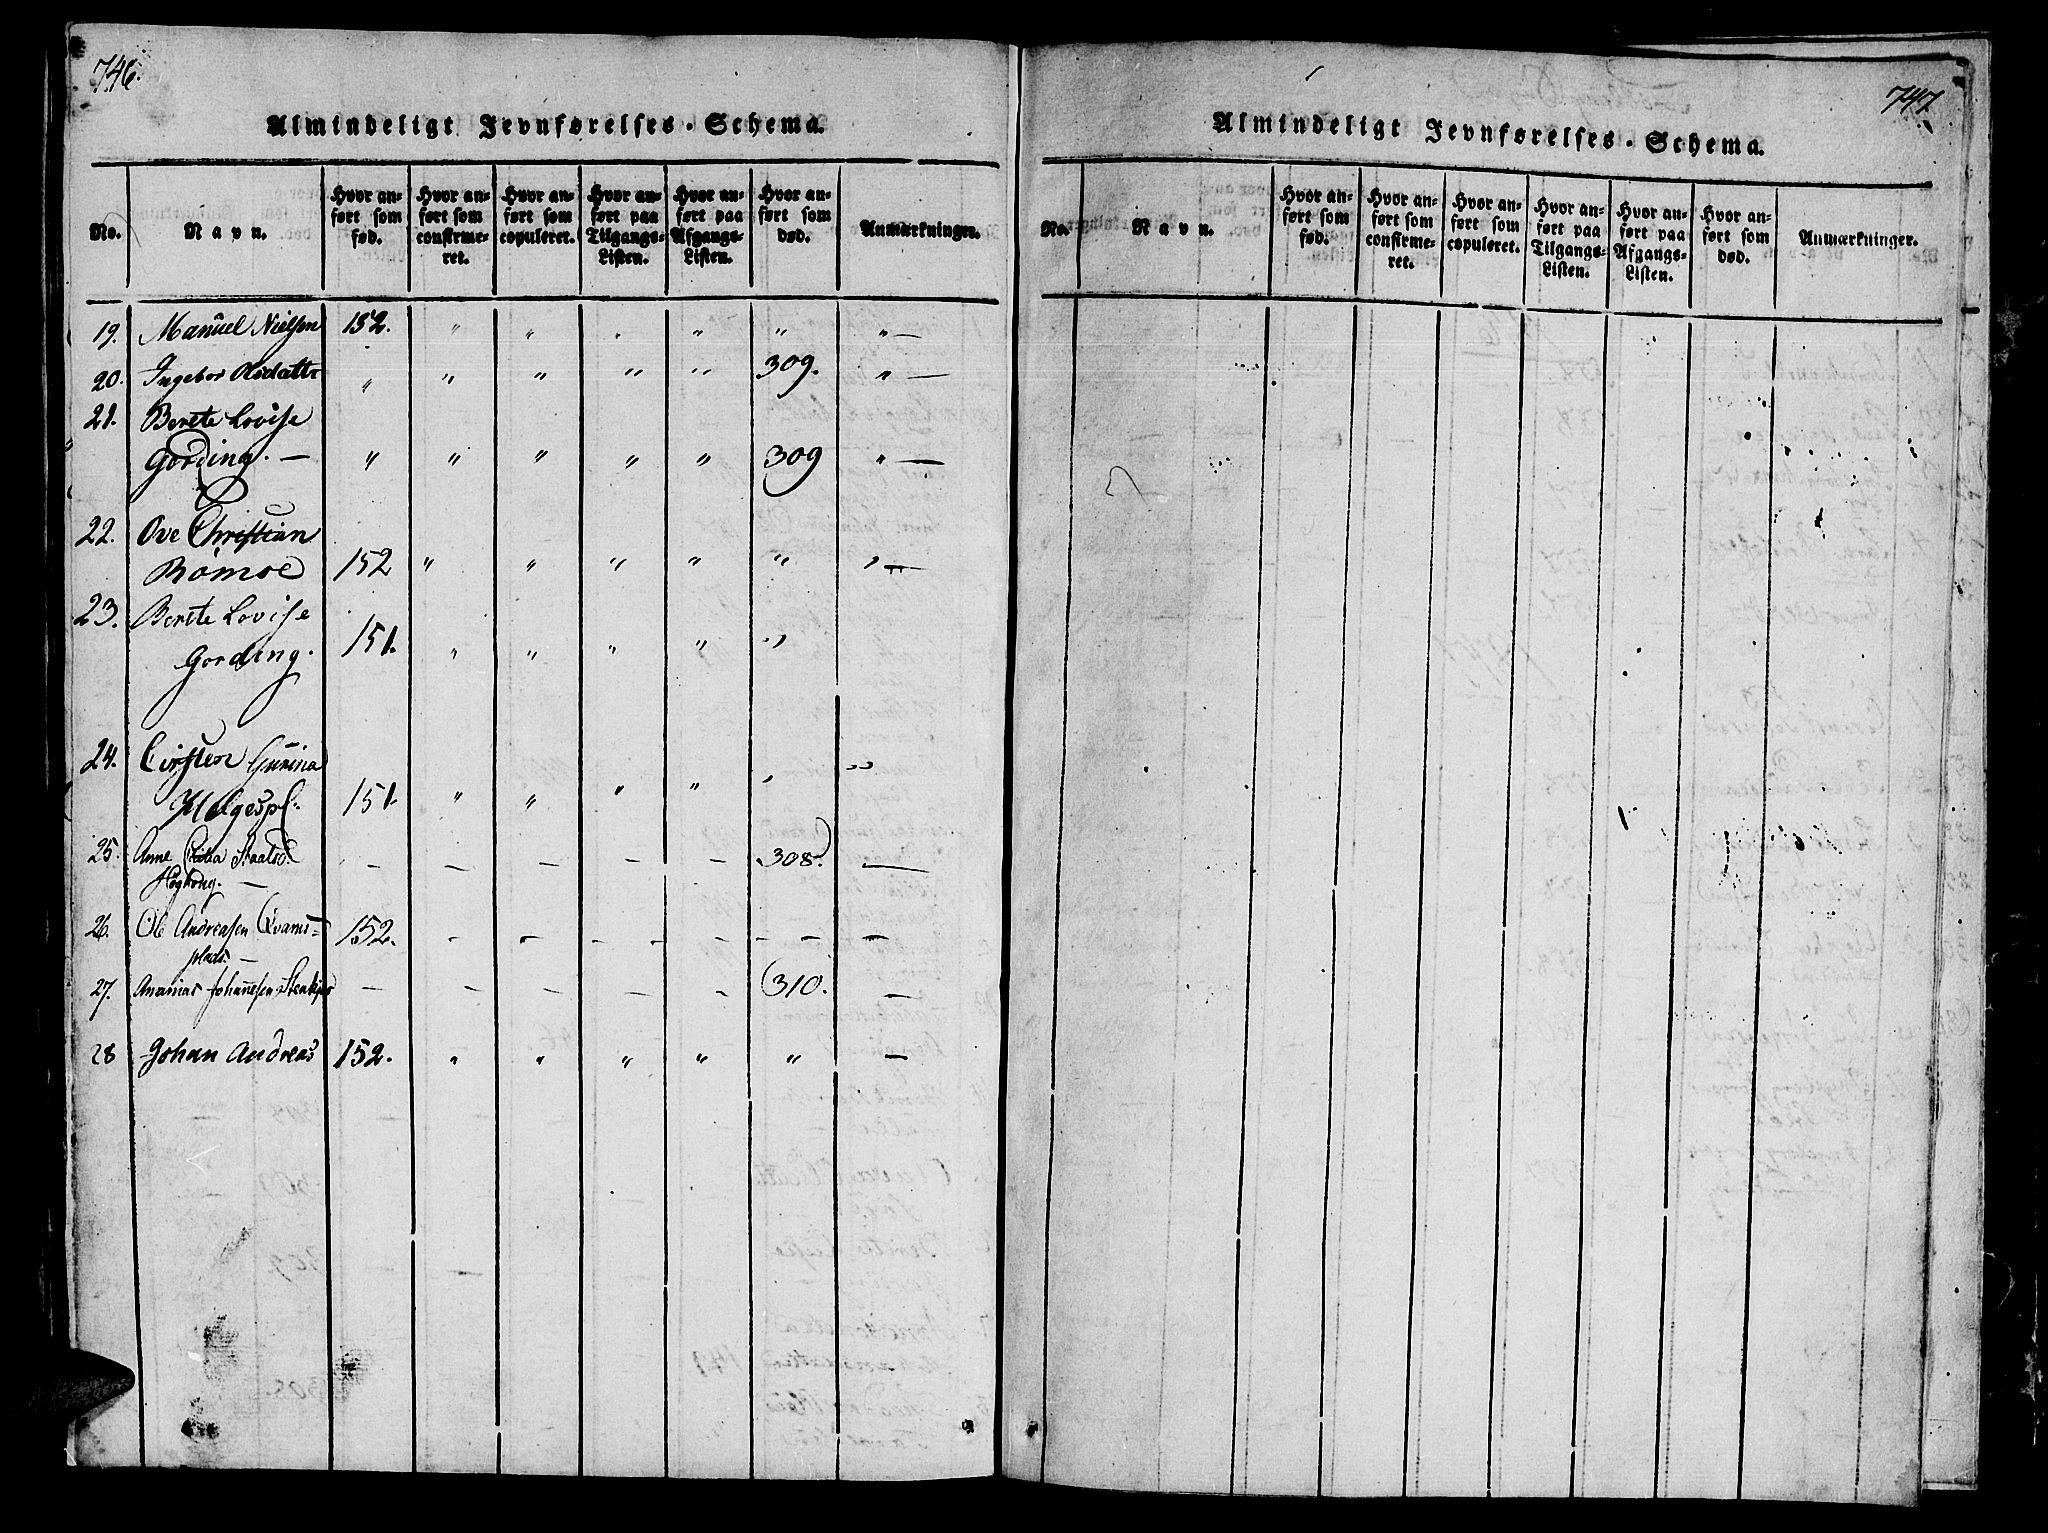 746.
Almindeligt Jevnførelses-Schema.
No.
Navn.
Hvor anført som fød.
Hvor anført som confirmeret.
Hvor anført som copuleret.
Hvor anført paa Tilgangs-Listen.
Hvor anført paa Afgangs-Listen.
Hvor anført som død.
Anmærkninger.
19. Manuel Nielsen 152. " " " " " " —
20. Ingebor Olsdattr " " " " " 309. " —
21. Berete Lovise
Gording. — " " " " " 309 " —
22. Ove Christian
Römoe 152 " " " " " " —
23. Berete Lovise
Gording. 151. " " " " "
24. Cirsten Gurina
Helgespl. 151. " " " " " "
25. Anne Staalsd. — — — — — 308. —
26. Ole Andreasen Qvams=
plads. — 152. — — — — — —
27. Ananias Johannesen — — — — — 310. —
28 Johan Andreas 152. " " " " " —
747.
Almindeligt Jevnførelses-Schema.
No.
Navn.
Hvor anført som fød.
Hvor anført som confirmeret.
Hvor anført som copuleret.
Hvor anført paa Tilgangs-Listen.
Hvor anført paa Afgangs-Listen.
Hvor anført som død.
Anmærkninger.